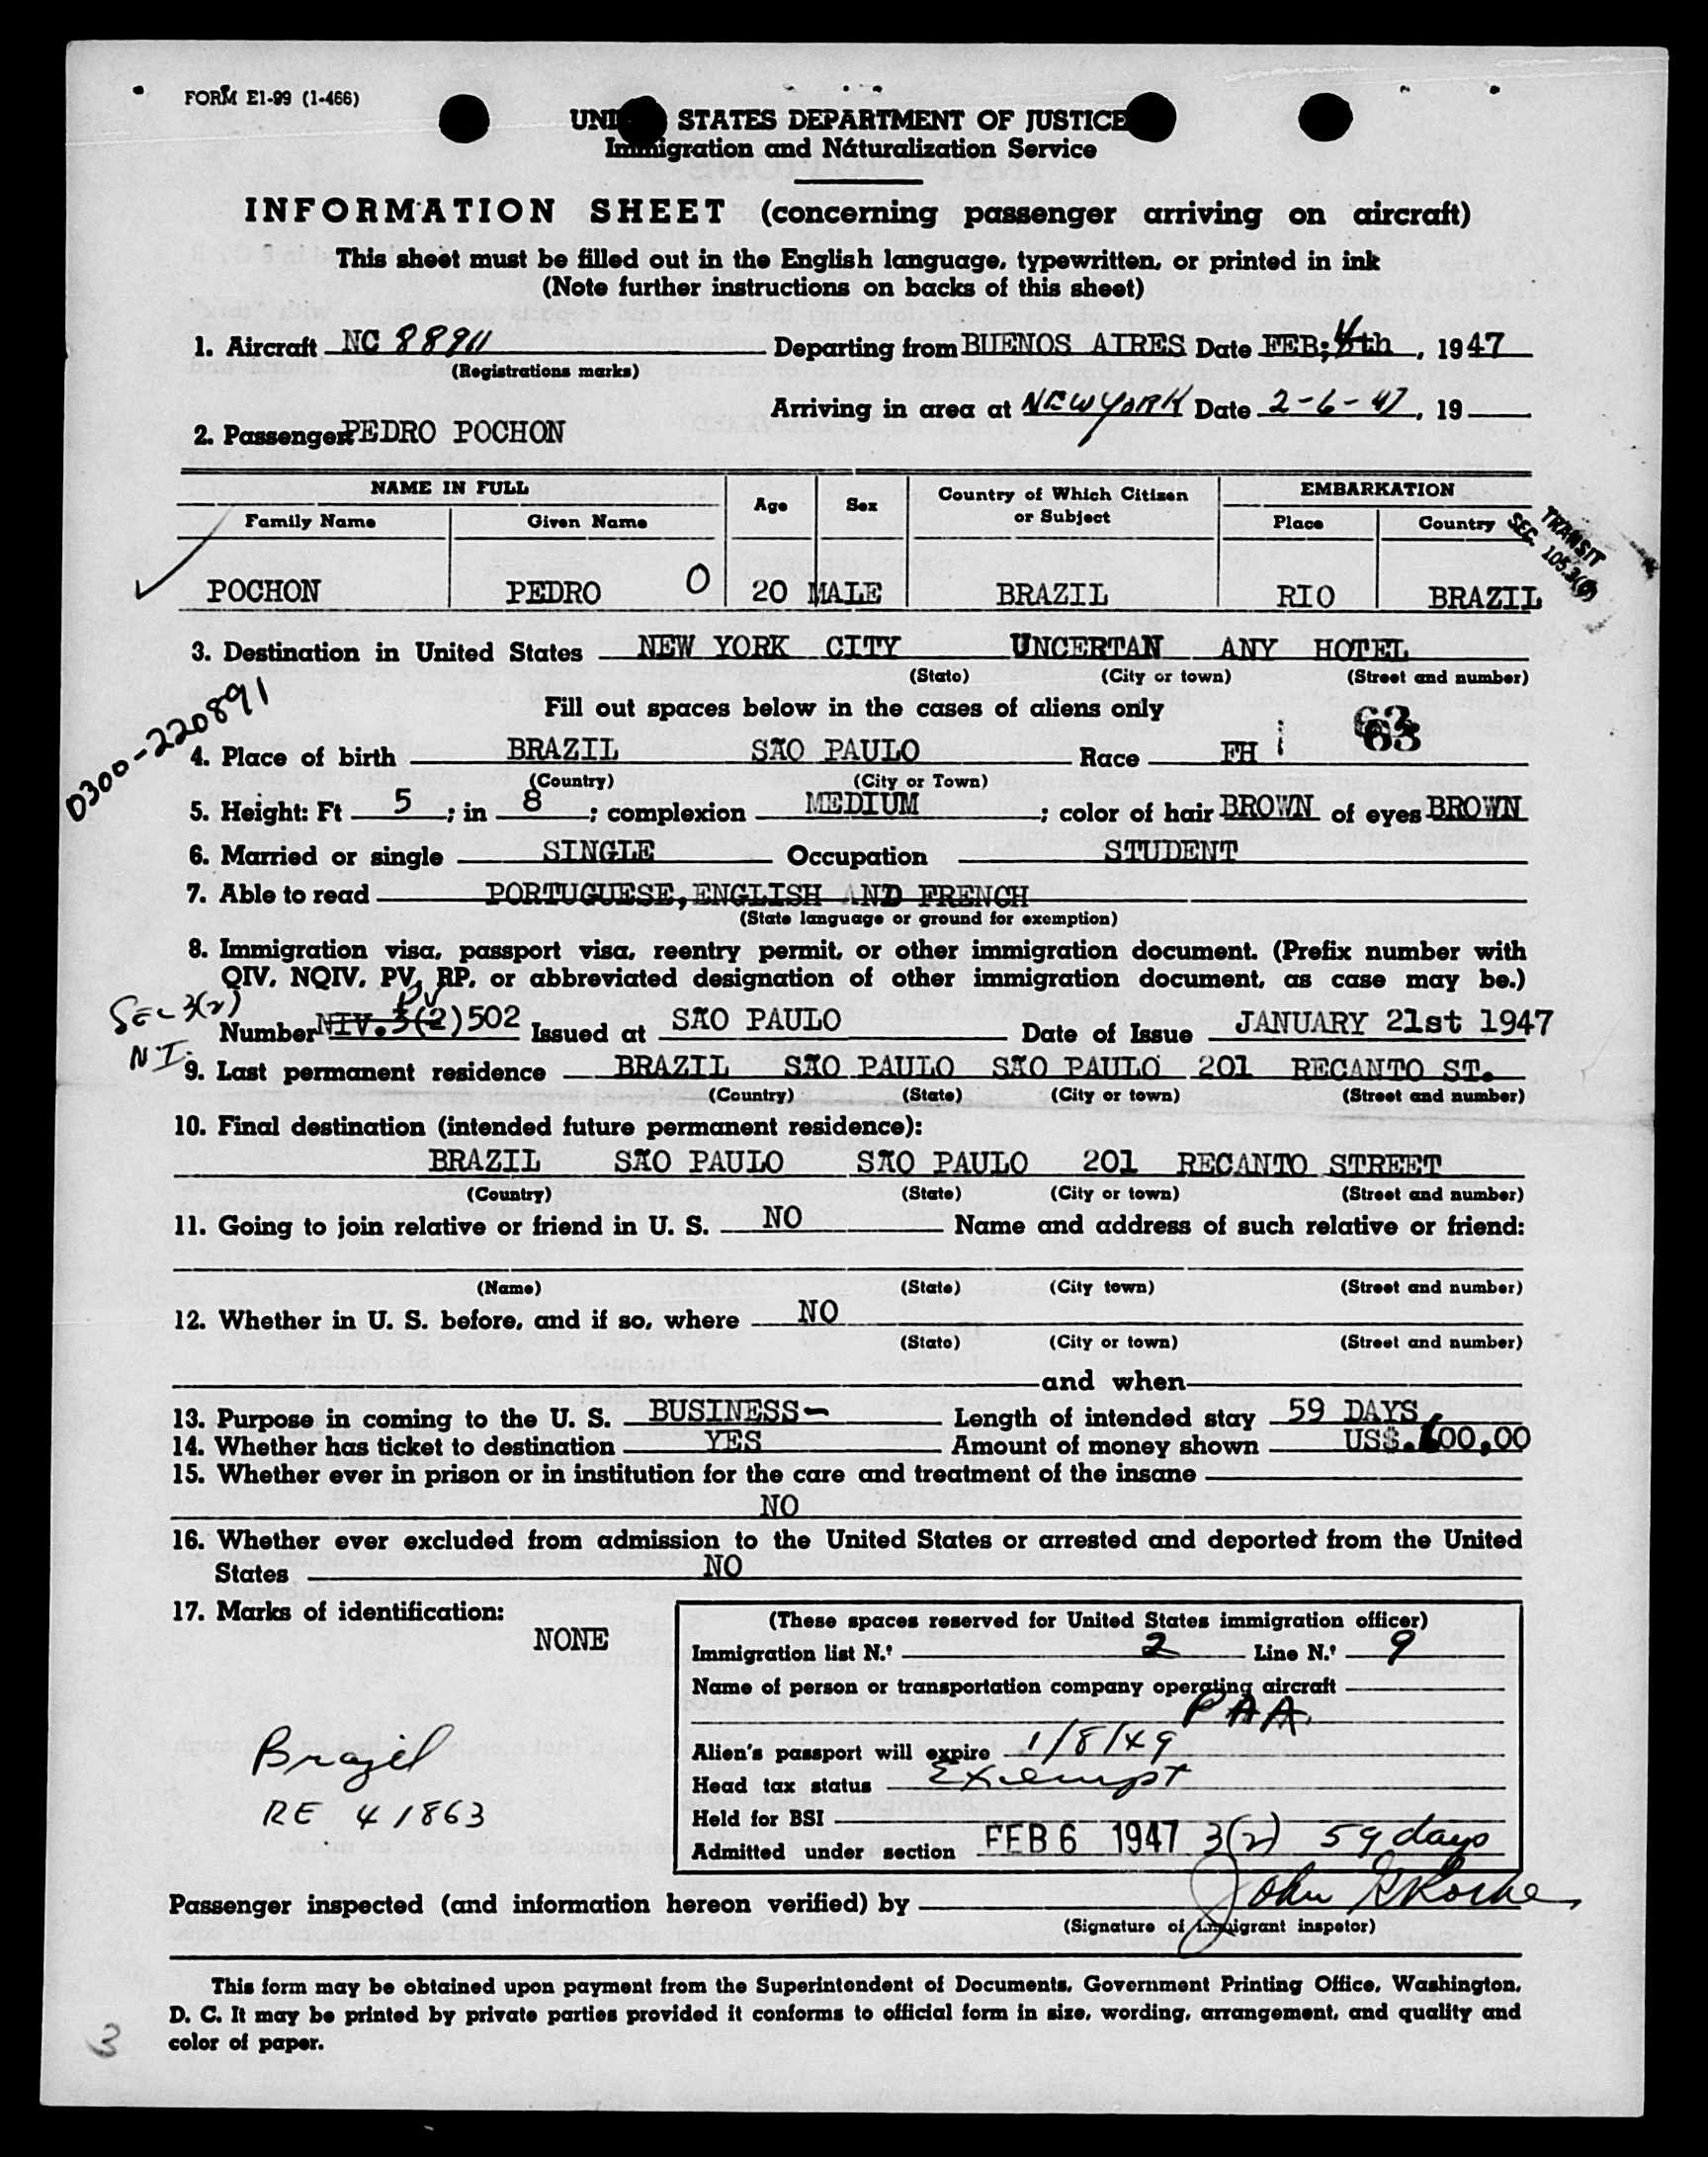 FORM E1-99 (1-466)
UNI STATES DEPARTMENT OF JUSTICE
Immigration and Náturalization Service
INFORMATION SHEET (concerning passenger arriving on aircraft)
This sheet must be filled out in the English language, typewritten, or printed in ink
(Note further instructions on backs of this sheet)
1. Aircraft NC 88911 Departing from BUENOS AIRES Date FEB; 4th, 1947
(Registrations marks)
Arriving in area at NEW YORK Date 2-6-47, 19
2. Passenger PEDRO POCHON
NAME IN FULL Age Sex Country of Which Citizen or Subject EMBARKATION
Family Name Given Name Place Country
TRANSIT
SEC. 105.3(
POCHON PEDRO O 20 MALE BRAZIL RIO BRAZIL
3. Destination in United States NEW YORK CITY UNCERTAN ANY HOTEL
(State) (City or town) (Street and number)
0300-220891
Fill out spaces below in the cases of aliens only
63
63
4. Place of birth BRAZIL SÃO PAULO Race FH
(Country) (City or Town)
5. Height: Ft 5 ; in 8 ; complexion MEDIUM ; color of hair BROWN of eyes BROWN
6. Married or single SINGLE Occupation STUDENT
7. Able to read PORTUGUESE, ENGLISH AND FRENCH
(State language or ground for exemption)
8. Immigration visa, passport visa, reentry permit, or other immigration document. (Prefix number with
QIV, NQIV, PV, RP, or abbreviated designation of other immigration document, as case may be.)
SEC 3(2) PV
Number NIV. 3(2) 502 Issued at SÃO PAULO Date of Issue JANUARY 21st 1947
N.I.
9. Last permanent residence BRAZIL SÃO PAULO SÃO PAULO 201 RECANTO ST.
(Country) (State) (City or town) (Street and number)
10. Final destination (intended future permanent residence):
BRAZIL SÃO PAULO SÃO PAULO 201 RECANTO STREET
(Country) (State) (City or town) (Street and number)
11. Going to join relative or friend in U. S. NO Name and address of such relative or friend:
(Name) (State) (City town) (Street and number)
12. Whether in U. S. before, and if so, where NO
(State) (City or town) (Street and number)
and when
13. Purpose in coming to the U. S. BUSINESS- Length of intended stay 59 DAYS
14. Whether has ticket to destination YES Amount of money shown US$. 100,00
15. Whether ever in prison or in institution for the care and treatment of the insane
NO
16. Whether ever excluded from admission to the United States or arrested and deported from the United
States NO
17. Marks of identification:
NONE
(These spaces reserved for United States immigration officer)
Immigration list N.º 2 Line N.º 9
Name of person or transportation company operating aircraft
PAA.
Alien's passport will expire 1/8/49
Head tax status Exempt
Held for BSI
Admitted under section FEB 6 1947 3(2) 59 days
Brazil
RE 41863
Passenger inspected (and information hereon verified) by John
(Signature of immigrant inspetor)
This form may be obtained upon payment from the Superintendent of Documents, Government Printing Office, Washington,
D. C. It may be printed by private parties provided it conforms to official form in size, wording, arrangement, and quality and
color of paper.
3